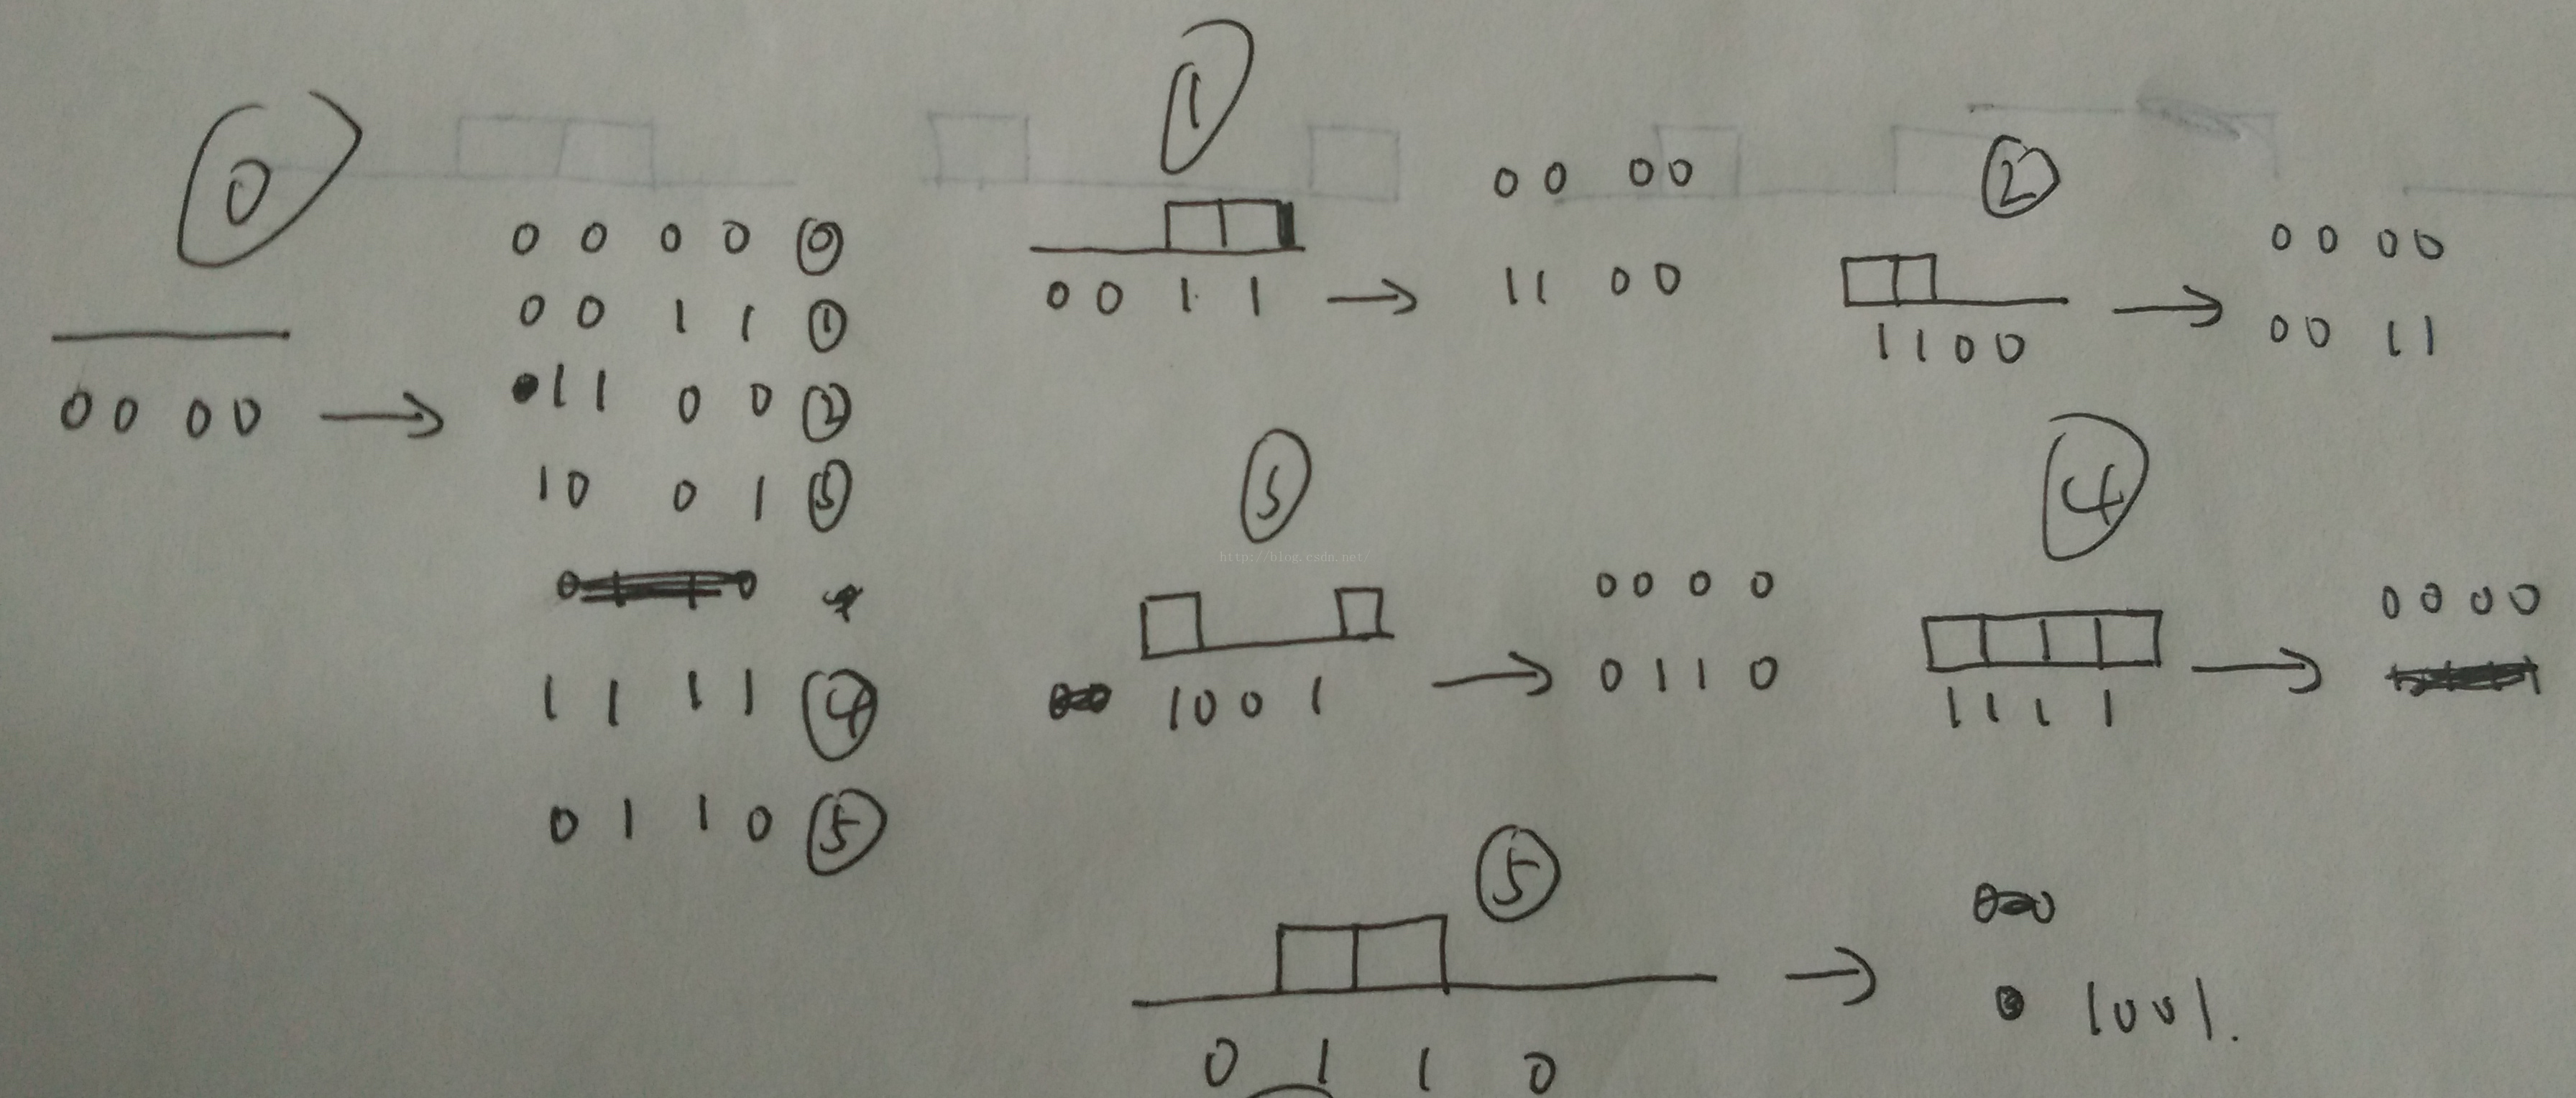 0
0 0 0 0 →
0 0 0 0 0
0 0 1 1 1
1 1 0 0 2
1 0 0 1 3
1 1 1 1 4
0 1 1 0 5
1
0 0 1 1 →
0 0 0 0
1 1 0 0
2
1 1 0 0 →
0 0 0 0
0 0 1 1
3
1 0 0 1 →
0 0 0 0
0 1 1 0
http://blog.csdn.net/
4
1 1 1 1 →
0 0 0 0
5
0 1 1 0 →
1 0 0 1.